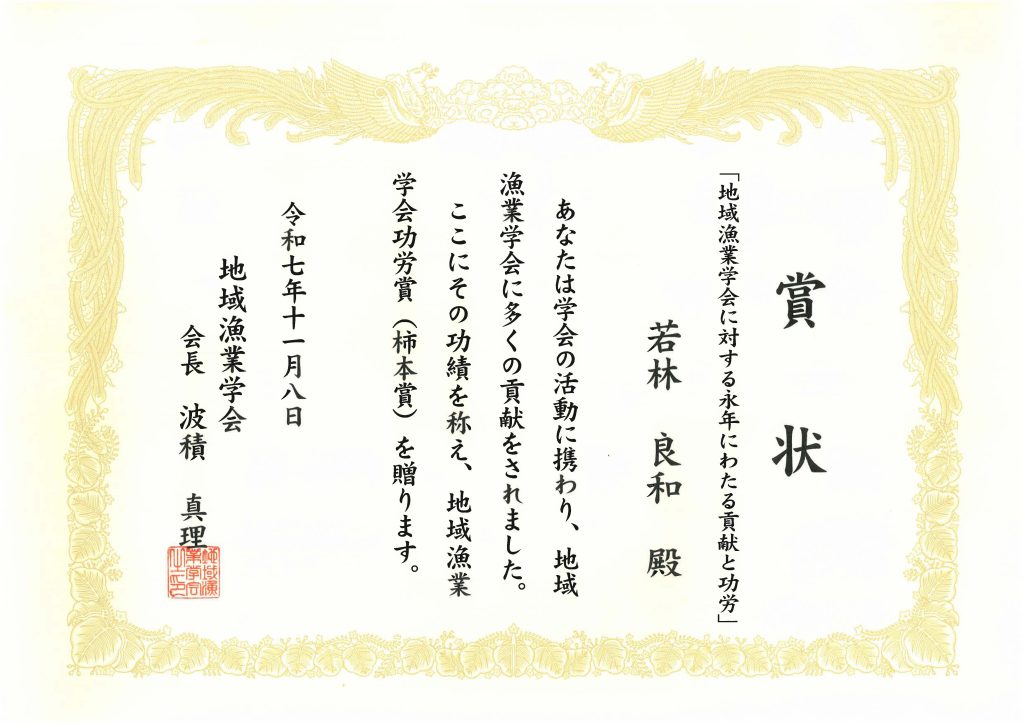 賞状
「地域漁業学会に対する永年にわたる貢献と功労」
若林 良和 殿
あなたは学会の活動に携わり、地域
漁業学会に多くの貢献をされました。
ここにその功績を称え、地域漁業
学会功労賞（柿本賞）を贈ります。
令和七年十一月八日
地域漁業学会
会長 波積 真理
地域漁
業学会
之印